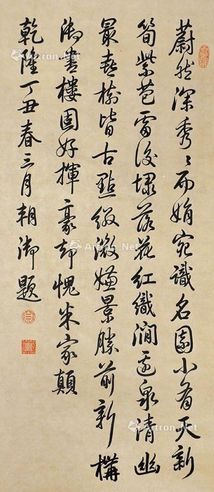 蔚然深秀々而娟宛識名園小有天新
筍紫苞雷後埭落花紅織澗邊泉清幽
最喜樹皆古點綴微嫌景勝前新構
御書樓固好揮豪却愧米家顛
乾隆丁丑春三月朔御題